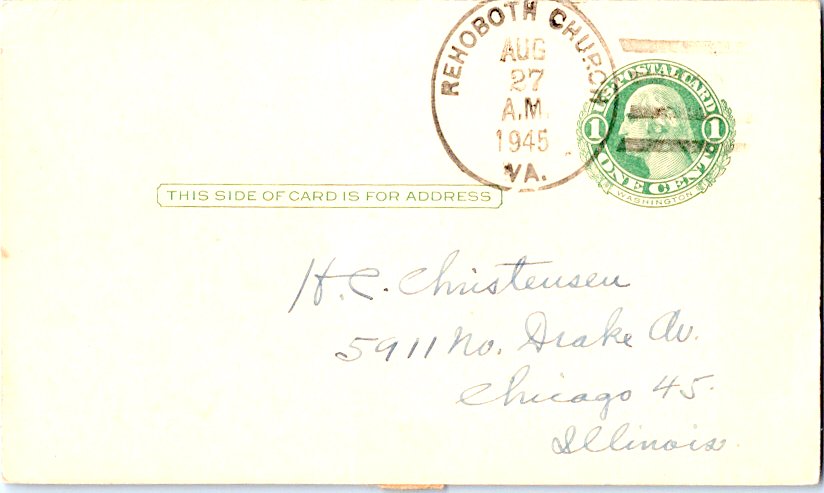 REHOBOTH CHURCH
AUG
27
A.M.
1945
VA.
U.S. POSTAL CARD
1 1
ONE CENT
WASHINGTON
THIS SIDE OF CARD IS FOR ADDRESS
H. C. Christensen
5911 No. Drake Av.
Chicago 45.
Illinois